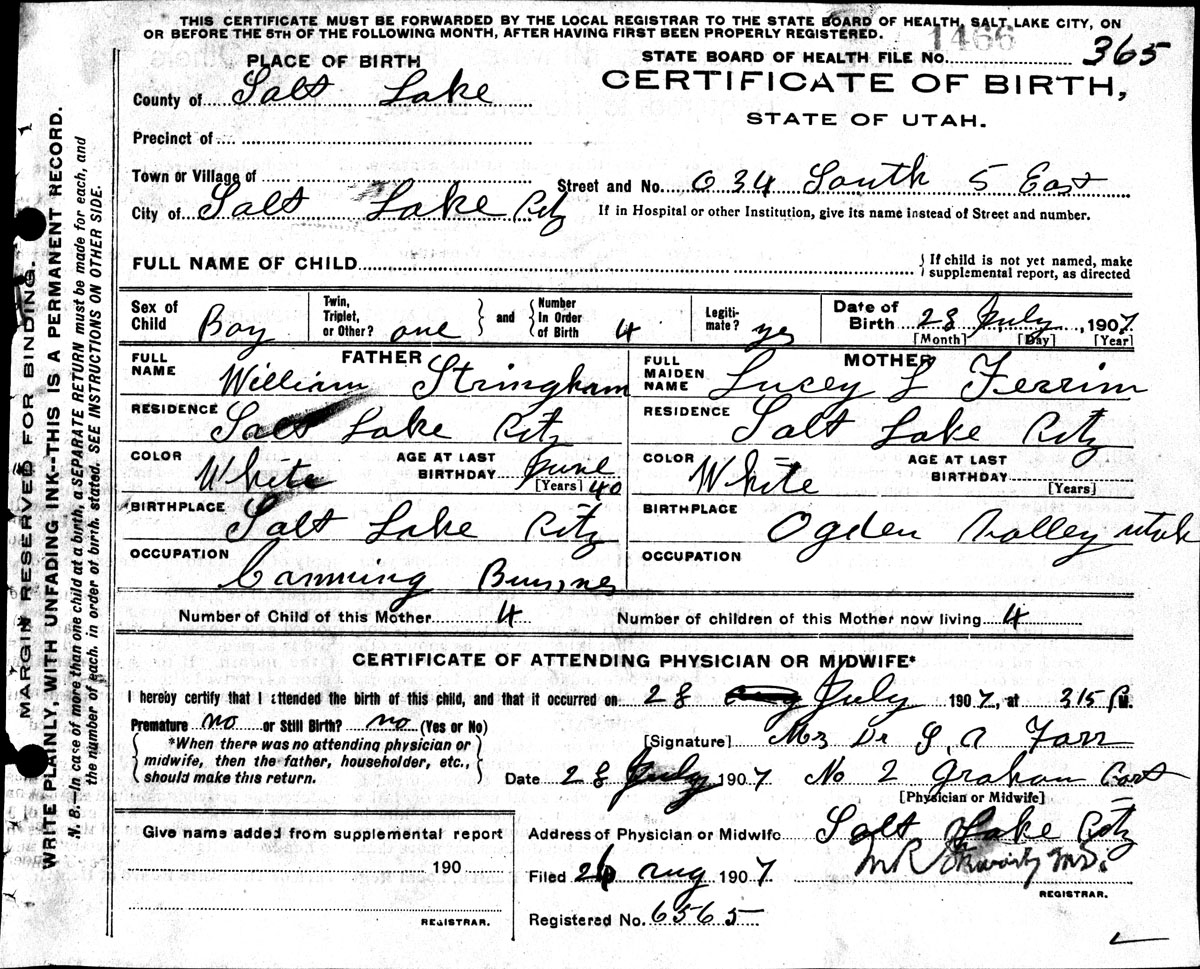 THIS CERTIFICATE MUST BE FORWARDED BY THE LOCAL REGISTRAR TO THE STATE BOARD OF HEALTH, SALT LAKE CITY, ON
OR BEFORE THE 5TH OF THE FOLLOWING MONTH, AFTER HAVING FIRST BEEN PROPERLY REGISTERED.
1466
PLACE OF BIRTH
STATE BOARD OF HEALTH FILE NO. 365
County of Salt Lake
CERTIFICATE OF BIRTH,
STATE OF UTAH.
Precinct of
Town or Village of
Street and No. 634 South 5 East
City of Salt Lake City
If in Hospital or other Institution, give its name instead of Street and number.
FULL NAME OF CHILD
If child is not yet named, make
supplemental report, as directed
Sex of Child Boy
Twin, Triplet, or Other? one
and
Number In Order of Birth 4
Legitimate? yes
Date of Birth 28 July, 1907.
[Month] [Day] [Year]
FATHER
FULL NAME William Stringham
MOTHER
FULL MAIDEN NAME Lucey L Ferrin
RESIDENCE Salt Lake City
RESIDENCE Salt Lake City
COLOR White
AGE AT LAST BIRTHDAY June 40
[Years]
COLOR White
AGE AT LAST BIRTHDAY
[Years]
BIRTHPLACE Salt Lake City
BIRTHPLACE Ogden Valley utah
OCCUPATION Canning
OCCUPATION
Number of Child of this Mother 4
Number of children of this Mother now living 4
CERTIFICATE OF ATTENDING PHYSICIAN OR MIDWIFE*
I hereby certify that I attended the birth of this child, and that it occurred on 28 July 1907, at 315 P.M.
Premature no or Still Birth? no (Yes or No)
*When there was no attending physician or
midwife, then the father, householder, etc.,
should make this return.
[Signature] Mrs Dr S. A Farr
Date 28 July 1907 No 2 Graham
[Physician or Midwife]
Give name added from supplemental report
190
REGISTRAR.
Address of Physician or Midwife Salt Lake City
Filed 26 Aug 1907
REGISTRAR.
Registered No. 6565
MARGIN RESERVED FOR BINDING.
WRITE PLAINLY, WITH UNFADING INK--THIS IS A PERMANENT RECORD.
N. B.--In case of more than one child at a birth, a SEPARATE RETURN must be made for each, and
the number of each, in order of birth, stated. SEE INSTRUCTIONS ON OTHER SIDE.